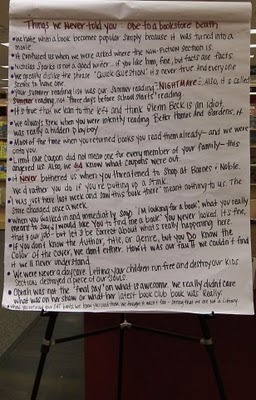 Things we Never told you: Ode to a bookstore death
• We hate when a book becomes popular simply because it was turned into a
movie.
• It confused us when we were asked where the Non-Fiction section is.
• Nicholas Sparks is not a good writer... if you like him, fine, but facts are facts.
• We greatly dislike the phrase "Quick Question". It's never true. And everyone
seems to have one.
• Your summer reading list was our summer reading NIGHTMARE. Also, it's called
summer reading, not three days before school starts reading.
• It's true that we lean to the left and think Glenn Beck is an idiot.
• We always knew when you were intently reading Better Homes and Gardens, it
was really a hidden Playboy.
• Most of the time when you returned books you read them already - and we were
onto you.
• Limit one coupon did not mean one for every member of your family - this
angered us. Also, we did know what coupons were out.
• It never bothered us when you threatened to shop at Barnes & Noble.
We'd rather you do if you're putting up a stink.
• "I was just here last week and saw this book there" meant nothing to us. The
store changed once a week.
• When you walked in and immediately said, "I'm looking for a book," what you really
meant to say is, "I would like you to find me a book." You never looked. It's fine,
that's our job - but let's be correct about what's really happening here.
• If you don't know the author, title, or genre, but you do know the
color of the cover, we don't either. How it was our fault we couldn't find
it we'll never understand.
• We were never a daycare. Letting your children run free and destroy our kids
section destroyed a piece of our souls.
• Oprah was not the "final say" on what is awesome. We really didn't care
what was on her show or what her latest book club book was. Really.